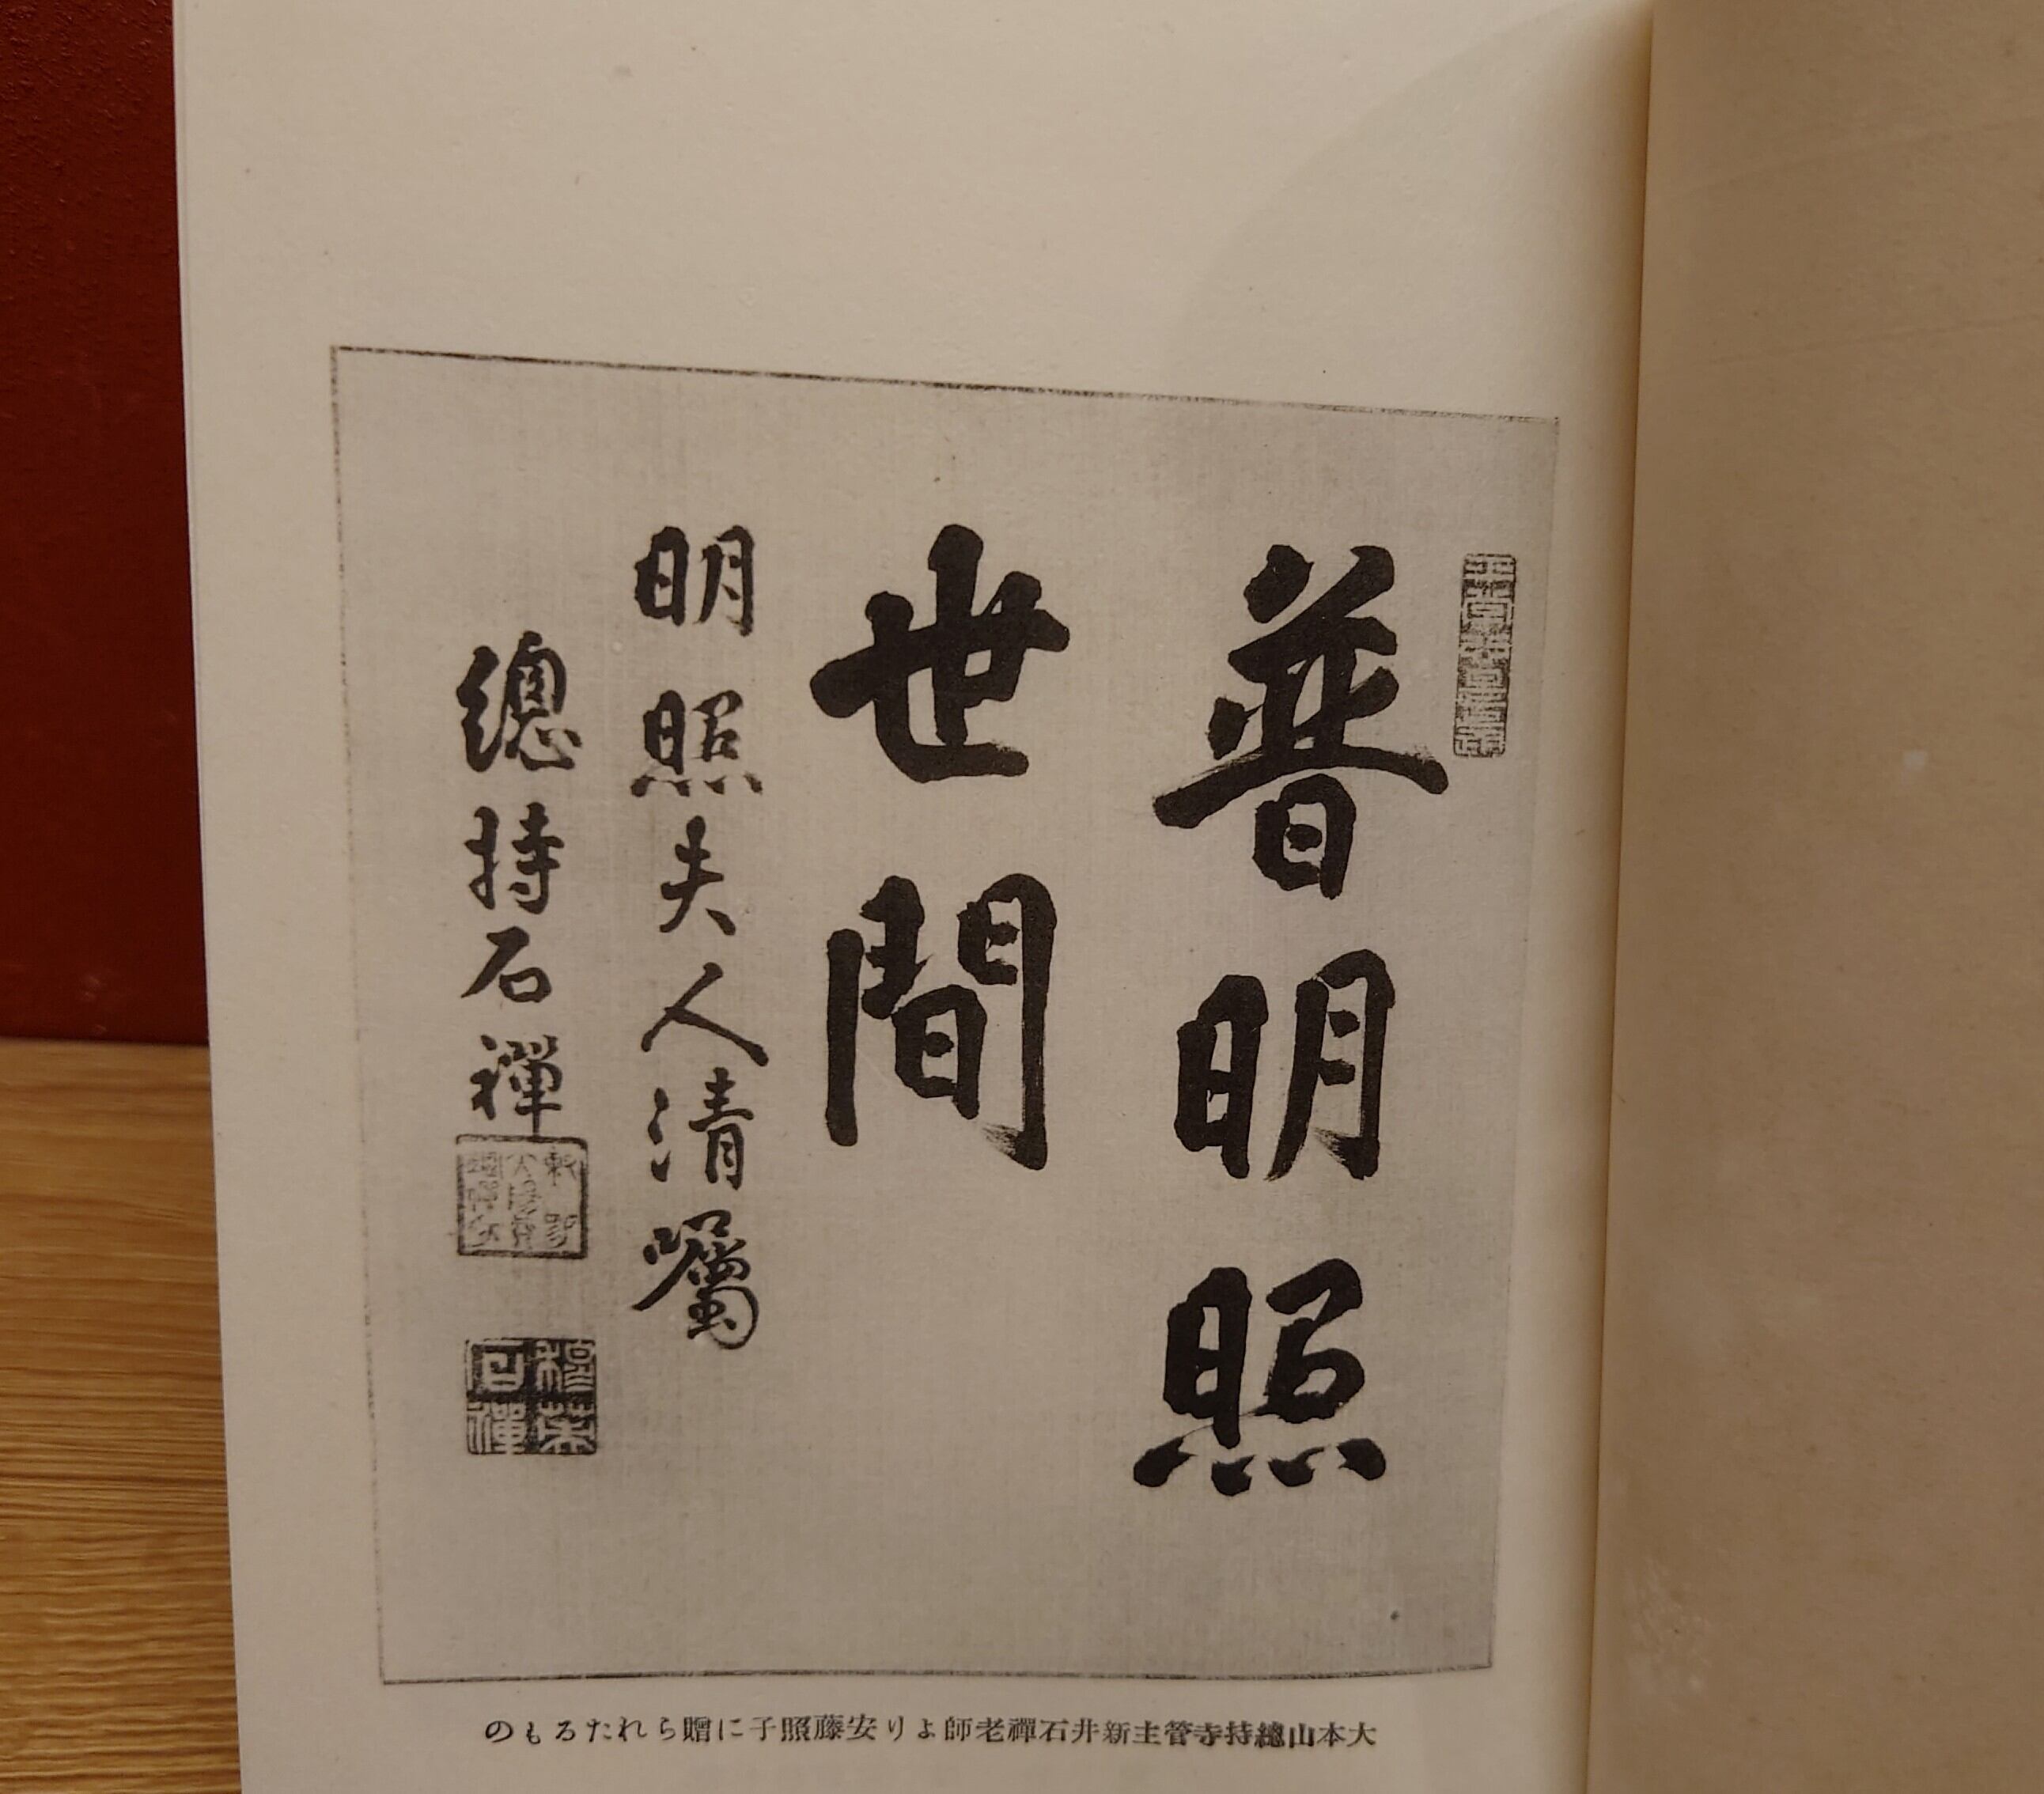 普明照
世間
明照夫人清囑
總持石禪
穆英石禪
大本山總持寺管主新井石禪老師より安藤照子に贈られたるもの